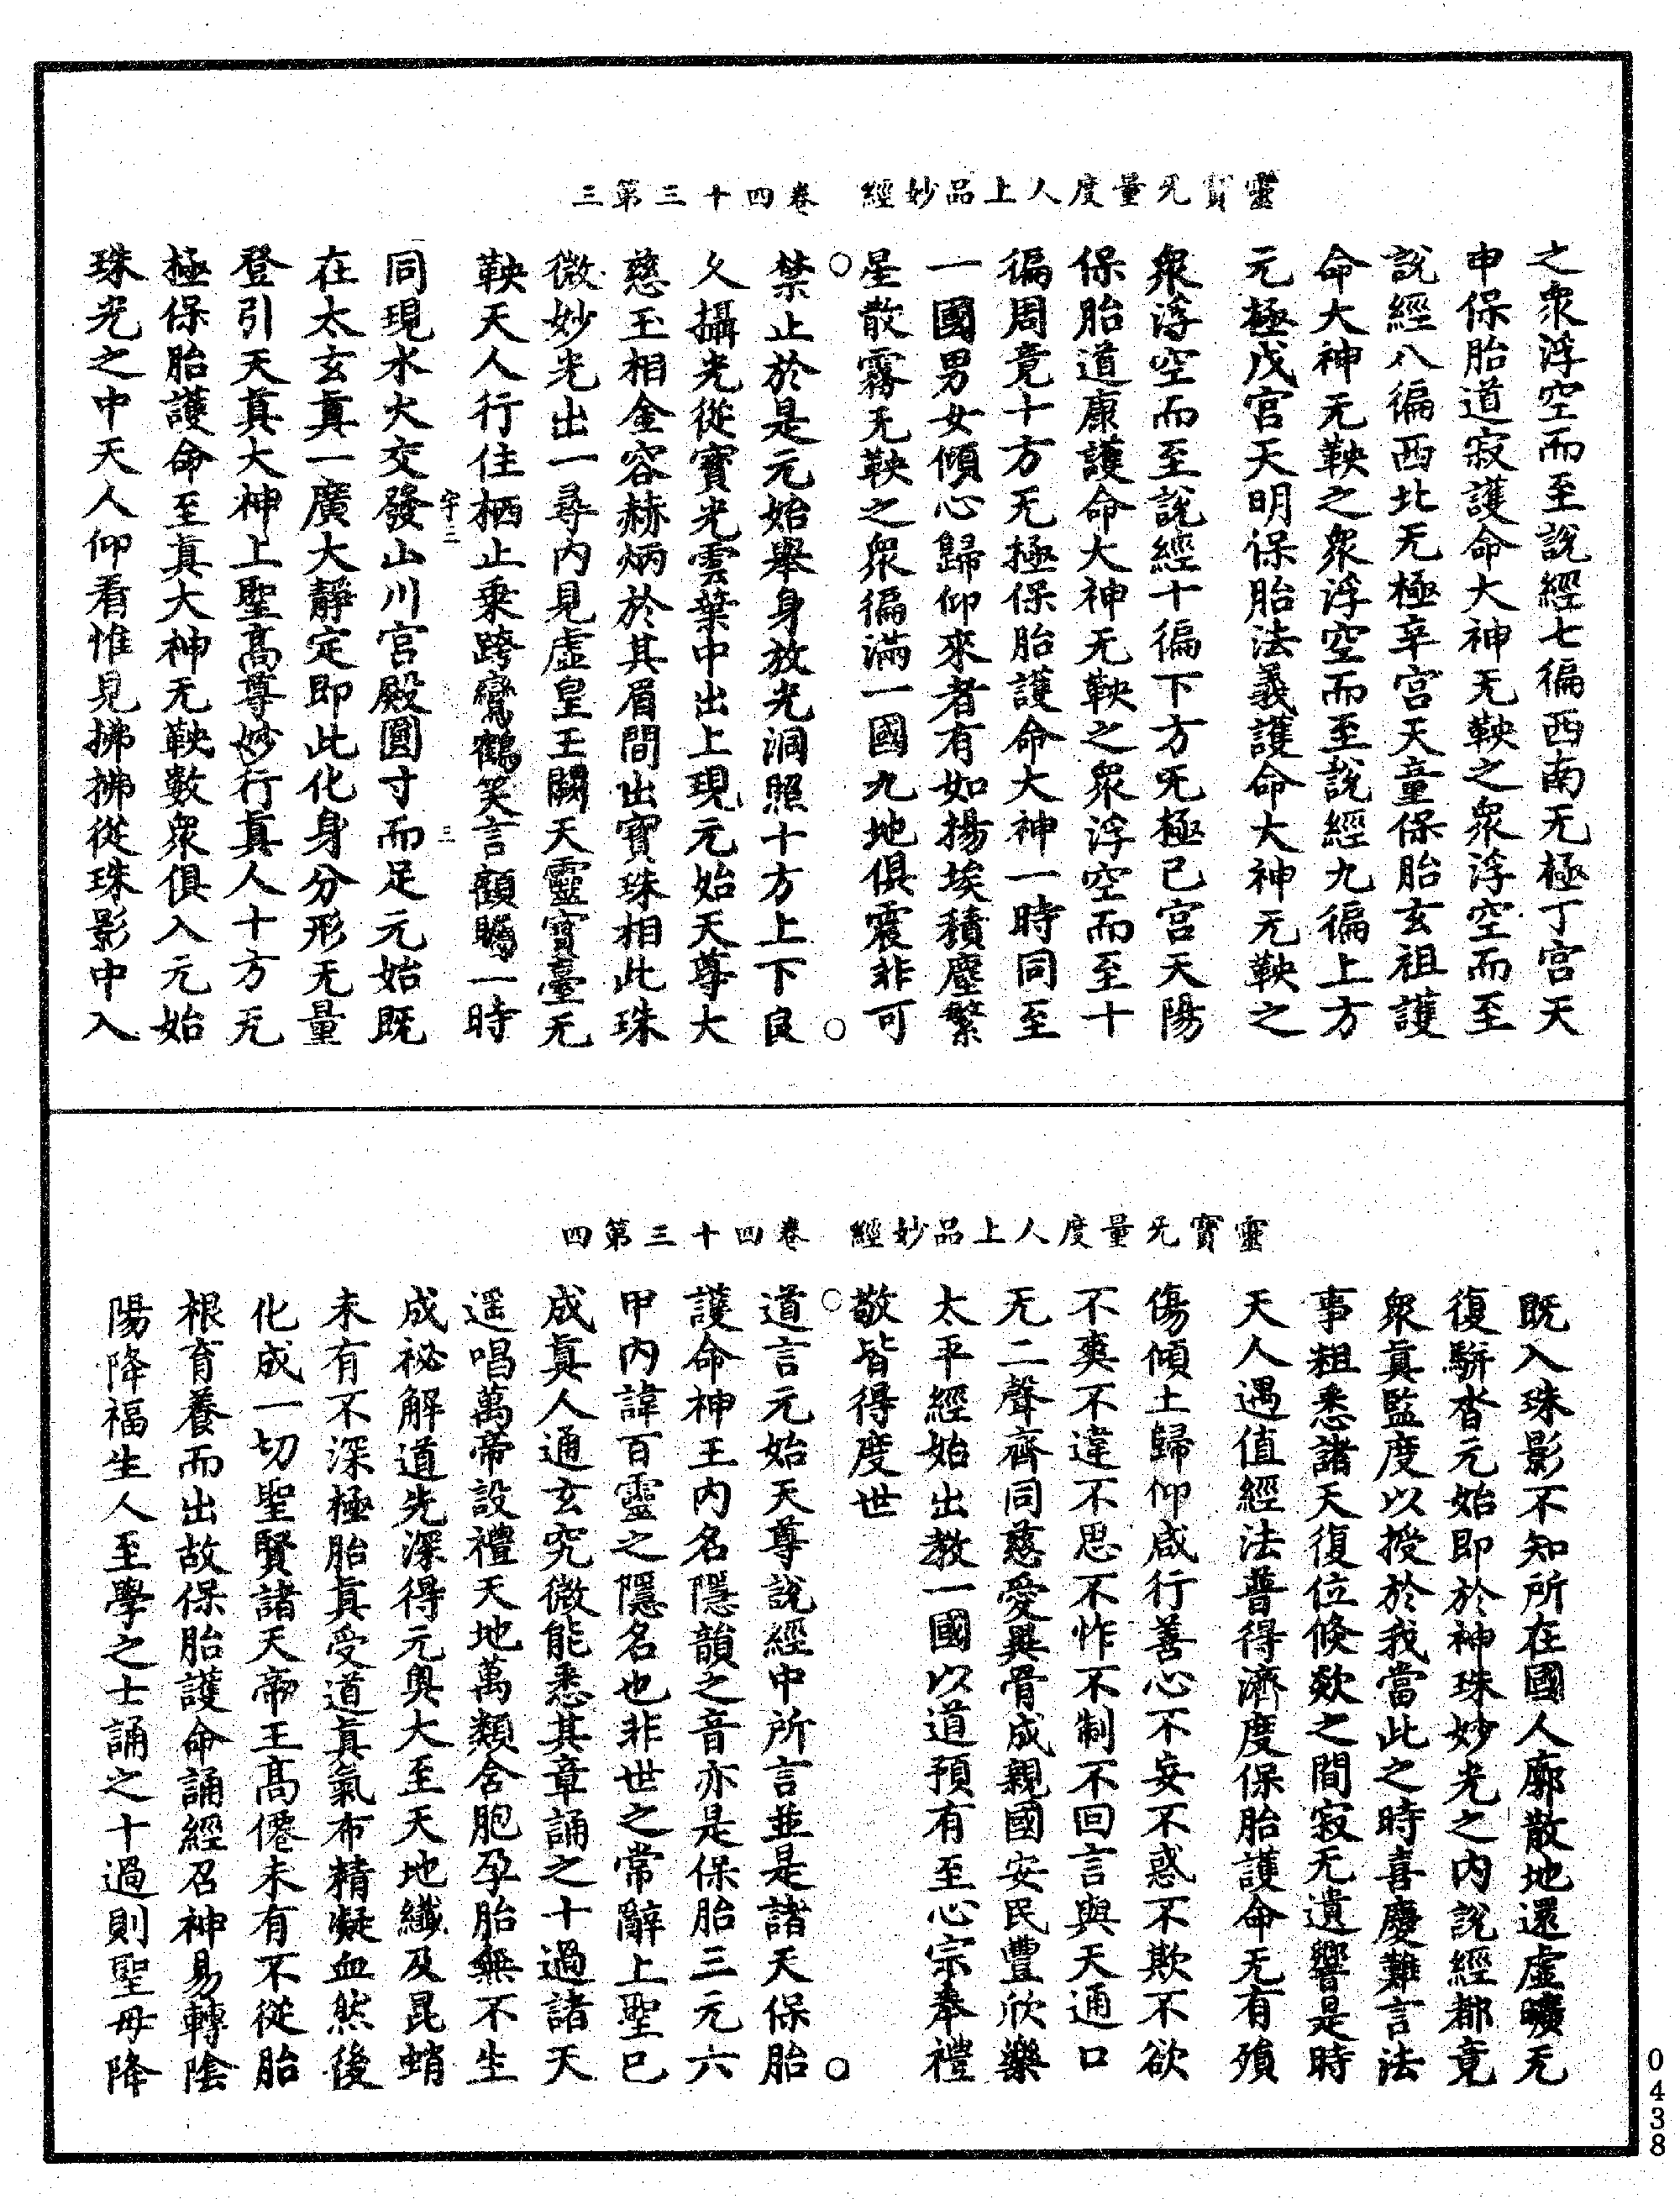 靈寶旡量度人上品妙經　卷四十三第三
之衆浮空而至說經七徧西南无極丁宮天
申保胎道寂護命大神无鞅之衆浮空而至
說經八徧西北无極辛宮天童保胎玄祖護
命大神无鞅之衆浮空而至說經九徧上方
元極戊宮天明保胎法羲護命大神无鞅之
衆浮空而至說經十徧下方旡極己宮天陽
保胎道康護命大神无鞅之衆浮空而至十
徧周竟十方无極保胎護命大神一時同至
一國男女傾心歸仰來者有如揚埃積塵繁
星散霧无鞅之衆徧滿一國九地俱震非可
禁止於是元始舉身放光洞照十方上下良
久攝光從寶光雲葉中出上現元始天尊大
慈玉相金容赫炳於其眉間出寶珠相此珠
微妙光出一尋內見虛皇玉闕天靈寶臺无
鞅天人行住栖止乘跨鸞鶴笑言顧矚一時
字三　三
同現水火交發山川宮殿圓寸而足元始旣
在太玄眞一廣大靜定即此化身分形无量
登引天眞大神上聖高尊妙行眞人十方无
極保胎護命至眞大神无鞅數衆俱入元始
珠光之中天人仰看惟見拂拂從珠影中入
靈寶旡量度人上品妙經　卷四十三第四
旣入珠影不知所在國人廓散地還虛曠无
復騈沓元始即於神珠妙光之內說經都竟
衆眞監度以授於我當此之時喜慶難言法
事粗悉諸天復位倐欻之間寂无遺響是時
天人遇值經法普得濟度保胎護命无有殞
傷傾土歸仰咸行善心不妄不惑不欺不欲
不爽不違不思不怍不制不回言與天通口
无二聲齊同慈愛異骨成親國安民豐欣樂
太平經始出教一國以道預有至心宗奉禮
敬皆得度世
道言元始天尊說經中所言並是諸天保胎
護命神王內名隱韻之音亦是保胎三元六
甲內諱百靈之隱名也非世之常辭上聖已
成眞人通玄究微能悉其章誦之十過諸天
遥唱萬帝設禮天地萬類含胞孕胎無不生
成祕解道先深得元奧大至天地纖及昆蛸
未有不深極胎眞受道眞氣布精凝血然後
化成一切聖賢諸天帝王高僊未有不從胎
根育養而出故保胎護命誦經召神易轉陰
陽降福生人至學之士誦之十過則聖母降
0438